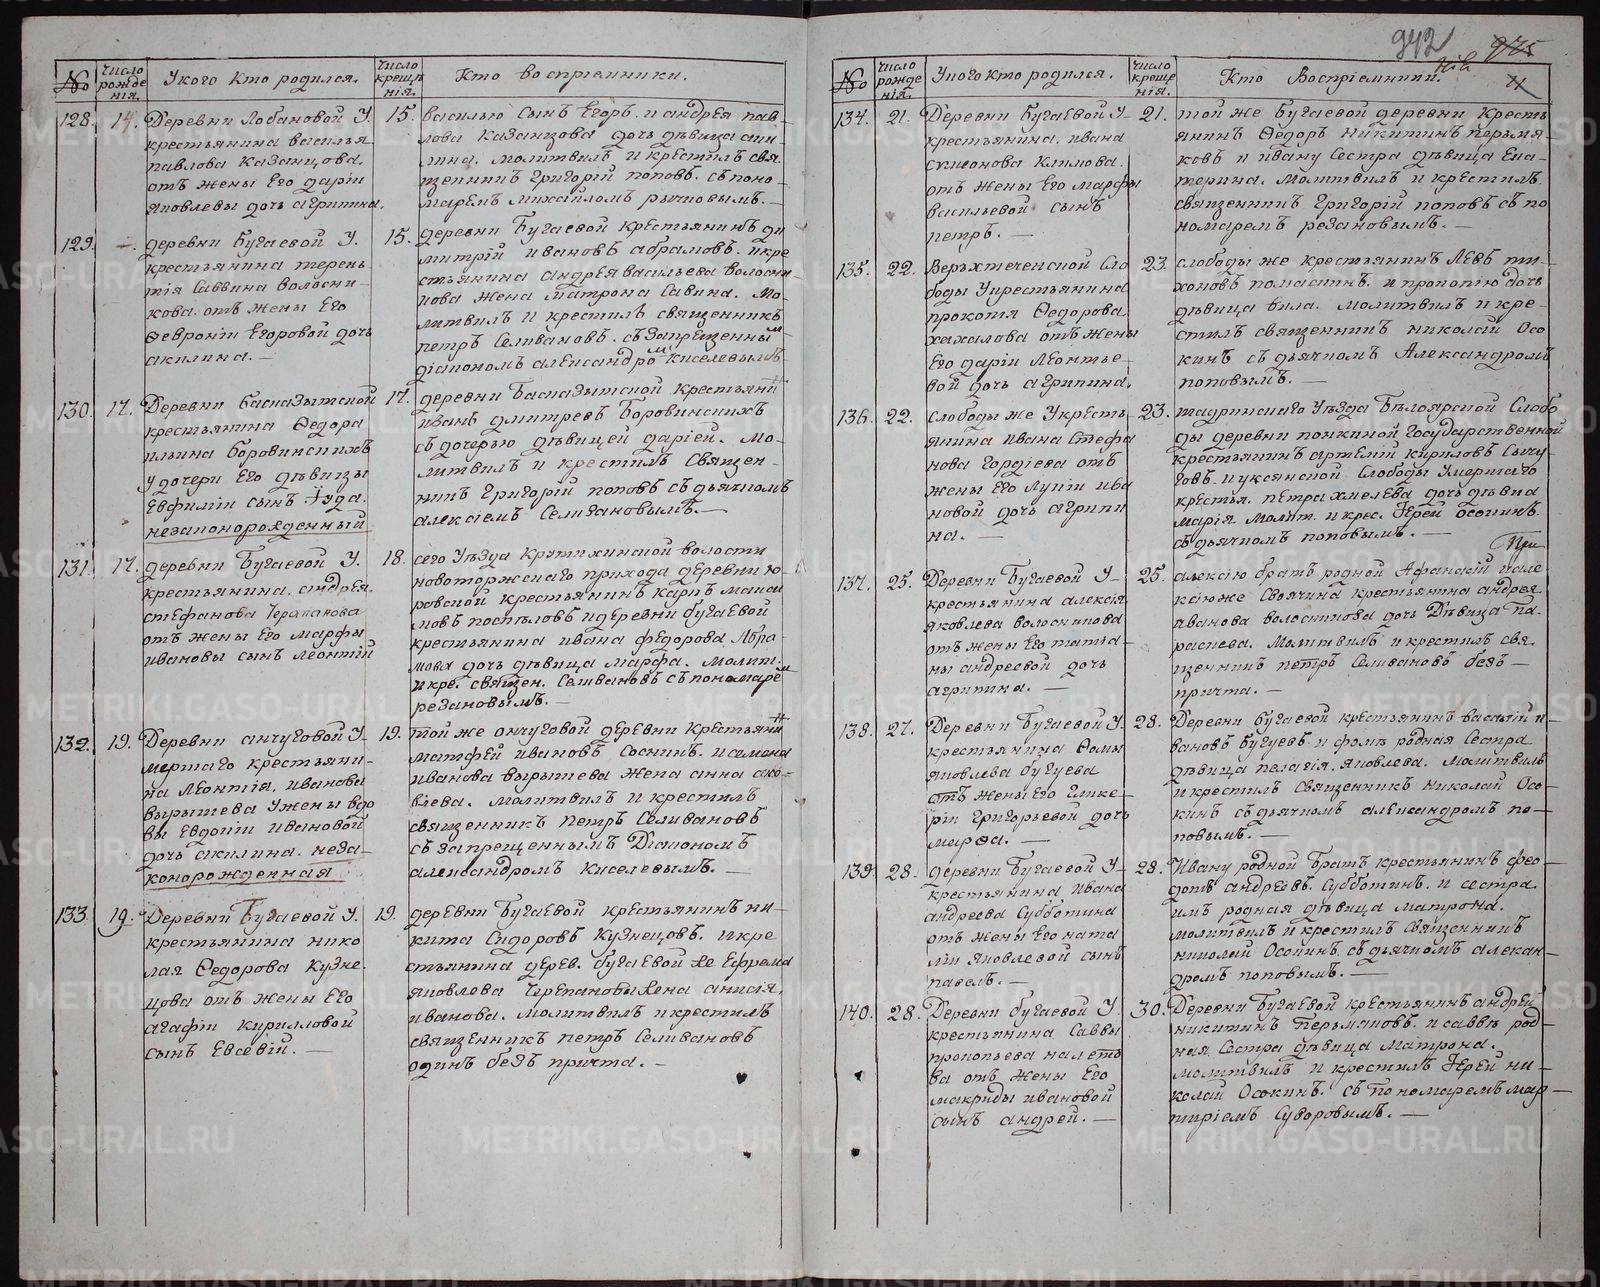 №
число рожденія.
У кого кто родился.
число крещенія.
Кто воспріемники.
128.
14.
Деревни Лобановой У
крестьянина василья
павлова Казанцова.
отъ жены Его даріи
яковлевы дочь агрипина,
15.
василью сынъ Егоръ. и андрея пав-
лова Казанцова дочь дѣвица
молитвилъ и крестилъ свя-
щенникъ Григорій поповъ. съ поно-
маремъ михайломъ рычковымъ. —
129.
—.
деревни Бугаевой У.
крестьянина терень-
тія Саввина волосни-
кова. отъ жены Его
Ѳевроніи Егоровой дочь
акилина. —
15.
деревни Бугаевой крестьянинъ ди
митрій ивановъ абрамовъ. и кре
стьянина андрея васильева волосни-
кова жена матрона Савина. Мо-
литвилъ и крестилъ священникъ
петръ Селивановъ. съ Запрещенны
діакономъ александромъ Киселевымъ
130.
17.
Деревни басказытской
крестьянина Ѳедора
ильина боровинскихъ
у дочери Его дѣвицы
Евфиміи сынъ Іуда.
незаконорожденный
17.
деревни Басказытской крестьяни
иванъ дмитревъ боровинскихъ
съ дочерью дѣвицей даріей. Мо-
литвилъ и крестилъ Священ-
никъ Григорій поповъ съ дьячкомъ
алексіемъ Селивановымъ. —
131.
17.
деревни Бугаевой У.
крестьянина. андрея
стефанова Черапанова
отъ жены Его марфы
ивановы сынъ леонтій
18.
сего Уѣзда крутихинской волости
новоторжскаго прихода деревни ю-
ровской крестьянинъ карпъ макси
мовъ постѣловъ и деревни бугаевой
крестьянина ивана федорова Абра-
мова дочь дѣвица марфа. молит.
и кре. священ. Селивановъ съ пономаремъ
резановымъ. —
132.
19.
Деревни анчуговой У-
мершаго крестьяни-
на леонтія, иванова
вырышева У жены вдо
вы Евдокіи ивановой
дочь акилина. неза-
конорожденная
19.
той же анчуговой деревни крестьяни
матфей ивановъ Соснинъ. и семена
иванова вырышева жена анна
молитвилъ и крестилъ
священникъ петръ Селивановъ
съ запрещеннымъ Діакономъ
александромъ киселевымъ. —
133.
19.
Деревни Бугаевой У.
крестьянина нико
лая Ѳедорова кузне-
цова отъ жены Его
агафіи кирилловой
сынъ Евсевій. —
19.
деревни Бугаевой крестьянинъ ни-
кита Сидоровъ кузнецовъ. и кре
стьянина дерев. бугаевой же Ефрема
яковлева Черепановы жена анисія.
иванова. молитвилъ и крестилъ
священникъ петръ Селивановъ
одинъ безъ причта. —
942
975
№
число рожденія.
У кого кто родился.
число крещенія.
Кто Воспріемники.
134.
21.
Деревни Бугаевой У
крестьянина. ивана
симонова климова.
отъ жены Его марфы
васильевой сынъ
петръ. —
21.
той же Бугаевой деревни крестъ
янинъ Ѳедоръ никитинъ перьмя-
ковъ и ивану Сестра дѣвица Ека-
терина. молитвилъ и крестилъ
священникъ Григорій поповъ съ по
номаремъ резановымъ. —
135.
22.
Верьхтеченской Сло
боды У крестьянина
прокопя Ѳедорова
хахалова отъ жены
Его даріи леонтье-
вой дочь агрипина.
23.
слободы же крестьянинъ левъ ти-
хоновъ и прокопю дочь
дѣвица Мила. молитвилъ и кре-
стилъ священникъ николай Осо
кинъ съ дьячкомъ Александромъ
поповымъ. —
136.
22.
слободы же У кресть-
янина ивана Стефа
нова Гордіева отъ
жены Его лукіи ива
новой дочь агрипи
на. —
23.
шадринскаго Уѣзда Бѣлоярской Слобо
ды деревни понкиной Государственной
крестьянинъ артемій кириловъ Сычу-
говъ. и уксянской Слободы Умершаго
крестья. петра хмелева дочь дѣвка
марія. молит. и крес. Іерей осокинъ.
съ дьячкомъ поповымъ. —
При
137.
25.
Деревни Бугаевой У-
крестьянина алексія
яковлева волоснікова
отъ жены Его татья-
ны андреевой дочь
агрипина. —
25.
алексію братъ родной Афанасій и але
ксію же Своячина крестьянина андрея
иванова волосникова дочь Дѣвица Па-
раскева. молитвилъ и крестилъ свя-
щенникъ петръ Селивановъ безъ —
причта. —
138.
27.
Деревни Бугаевой У-
крестьянина Ѳомы
яковлева бугуева
отъ жены Его глике-
ріи Григорьевой дочь
марѳа. —
28.
Деревни бугаевой крестьянинъ василій и-
вановъ бугуевъ. и фомѣ родная Сестра
дѣвица пелагія. яковлева. молитвилъ
и крестилъ Священникъ николай Осо-
кинъ съ дьячкомъ александромъ по-
повымъ. —
139.
28.
деревни Бугаевой У-
крестьянина ивана
андреева Субботина
отъ жены Его ната
ліи яковлевой сынъ
павелъ. —
28.
Ивану родной братъ крестьянинъ фео-
дотъ андреевъ. Субботинъ. и сестра.
имъ родная дѣвица матрона.
молитвилъ и крестилъ Священникъ
николай Осокинъ. съ дьячкомъ алексан-
дромъ поповымъ. —
140.
28.
Деревни бугаевой У
крестьянина Саввы
прокопьева налето
ва отъ жены Его
макриды ивановой
сынъ андрей. —
30.
Деревни Бугаевой крестьянинъ андрей
никитинъ Перьмяковъ. и саввѣ род-
ная Сестра дѣвица матрона.
молитвилъ и крестилъ Іерей ни-
колай Осокинъ. съ Пономаремъ мар-
тиріемъ Суворовымъ. —
METRIKI.GASO-URAL.RU